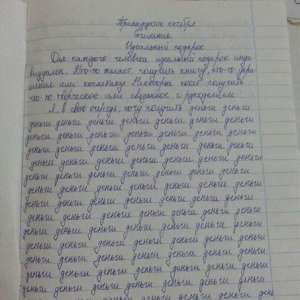 Тринадцатое октября
Сочинение
Идеальный подарок
Для каждого человека идеальный подарок инди-
видуален. Кто-то желает получить книгу, кто-то укра-
шение или косметику. Некоторые хотят получить
что-то творческое или
Я, в свою очередь, хочу получить деньги деньги
деньги деньги деньги деньги деньги деньги деньги
деньги деньги деньги деньги деньги деньги деньги
деньги деньги деньги деньги деньги деньги деньги
деньги деньги деньги деньги деньги деньги деньги
деньги деньги деньги деньги деньги деньги деньги
деньги деньги деньги деньги деньги деньги деньги
деньги деньги деньги деньги деньги деньги деньги
деньги деньги деньги деньги деньги деньги деньги
деньги деньги деньги деньги деньги деньги деньги
деньги деньги деньги деньги деньги деньги деньги
деньги деньги деньги деньги деньги деньги деньги
деньги деньги деньги деньги деньги деньги деньги
деньги деньги деньги деньги деньги деньги деньги
деньги деньги деньги деньги деньги деньги
деньги деньги деньги деньги